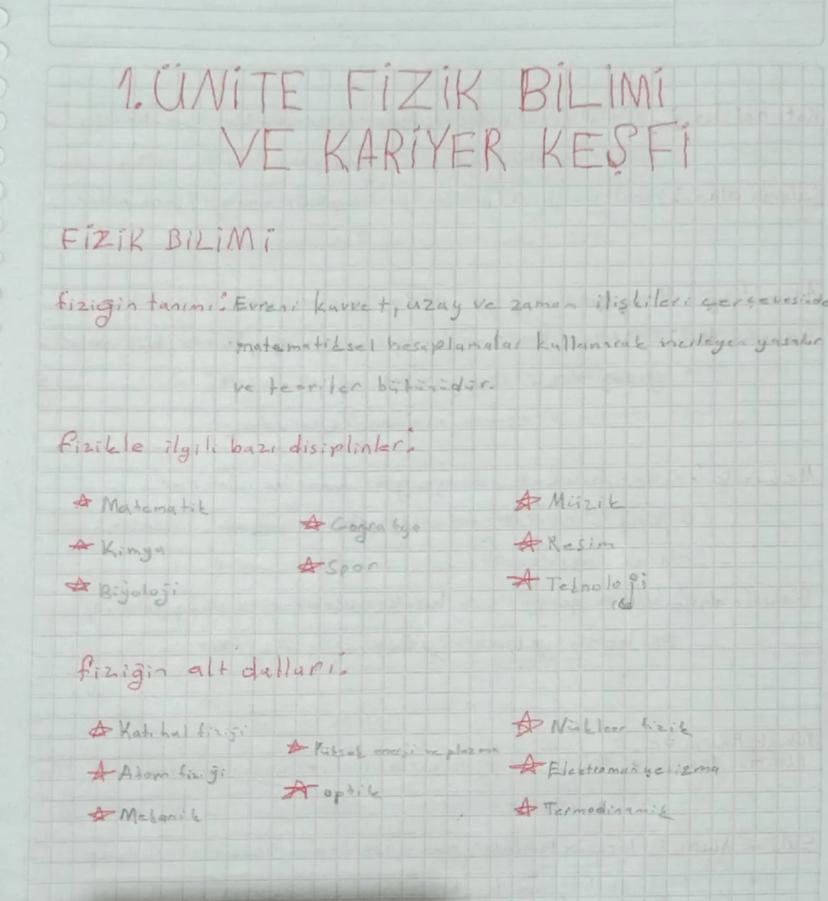 1. ÜNİTE FİZİK BİLİMİ
VE KARİYER KEŞFİ
FİZİK BİLİMİ
fiziğin tanımı: Evreni kuvvet, uzay ve zaman ilişkileri çerçevesinde
matematiksel hesaplamalar kullanarak inceleyen yasalar
ve teoriler bütünüdür.
fizikle ilgili bazı disiplinler:
☆ Matematik
☆ Kimya
☆ Biyoloji
☆ Coğrafya
☆ Spor
☆ Müzik
☆ Resim
☆ Teknoloji
fiziğin alt dalları:
☆ Katıhal fiziği
☆ Atom fiziği
☆ Mekanik
☆ Yüksek enerji ve plazma
☆ optik
☆ Nükleer fizik
☆ Elektromanyetizma
☆ Termodinamik